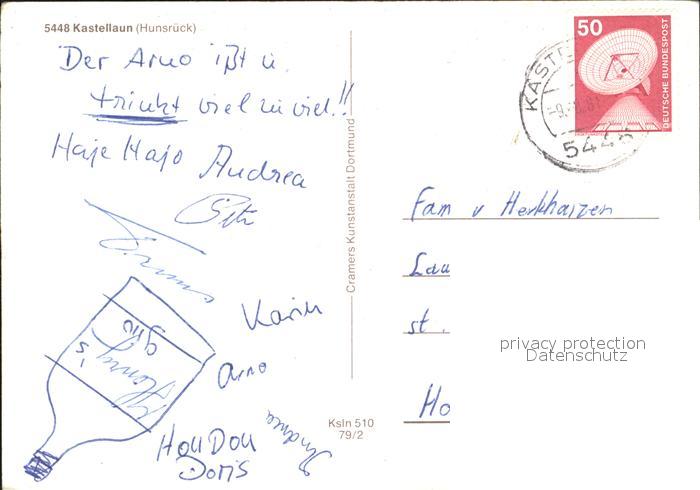 5448 Kastellaun (Hunsrück)
Der Arno ißt u.
trinkt viel zu viel!!
Haje Hajo Andrea
Karin
Arno
Andrea
HouDou
Doris
Cramers Kunstanstalt Dortmund
Ksln 510
79/2
50
DEUTSCHE BUNDESPOST
KASTE
5448
Fam v Herkhaizen
Lau
st.
Ho
privacy protection
Datenschutz